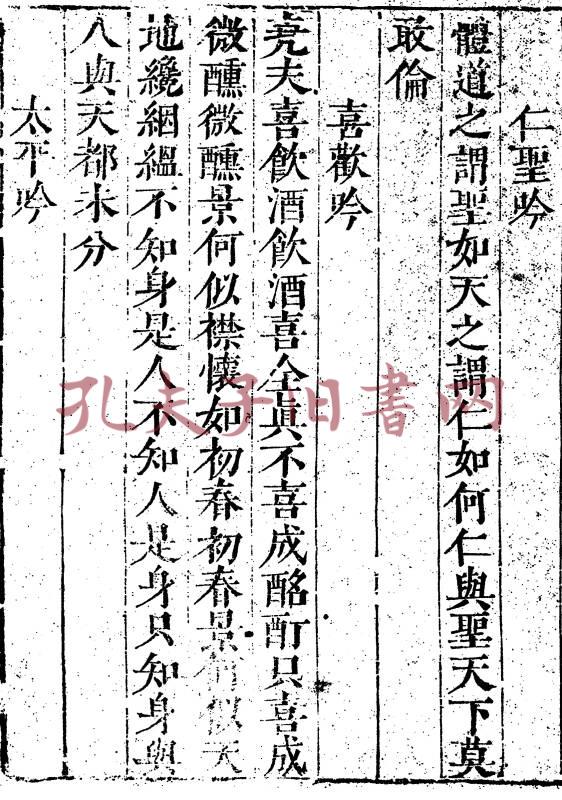 仁聖吟
體道之謂聖如天之謂仁如何仁與聖天下莫
敢倫
喜歡吟
堯夫喜飲酒飲酒喜全眞不喜成酩酊只喜成
微醺微醺景何似襟懷如初春初春景何似天
地纔絪縕不知身是人不知人是身只知身與
人與天都未分
太平吟
孔夫子旧书网